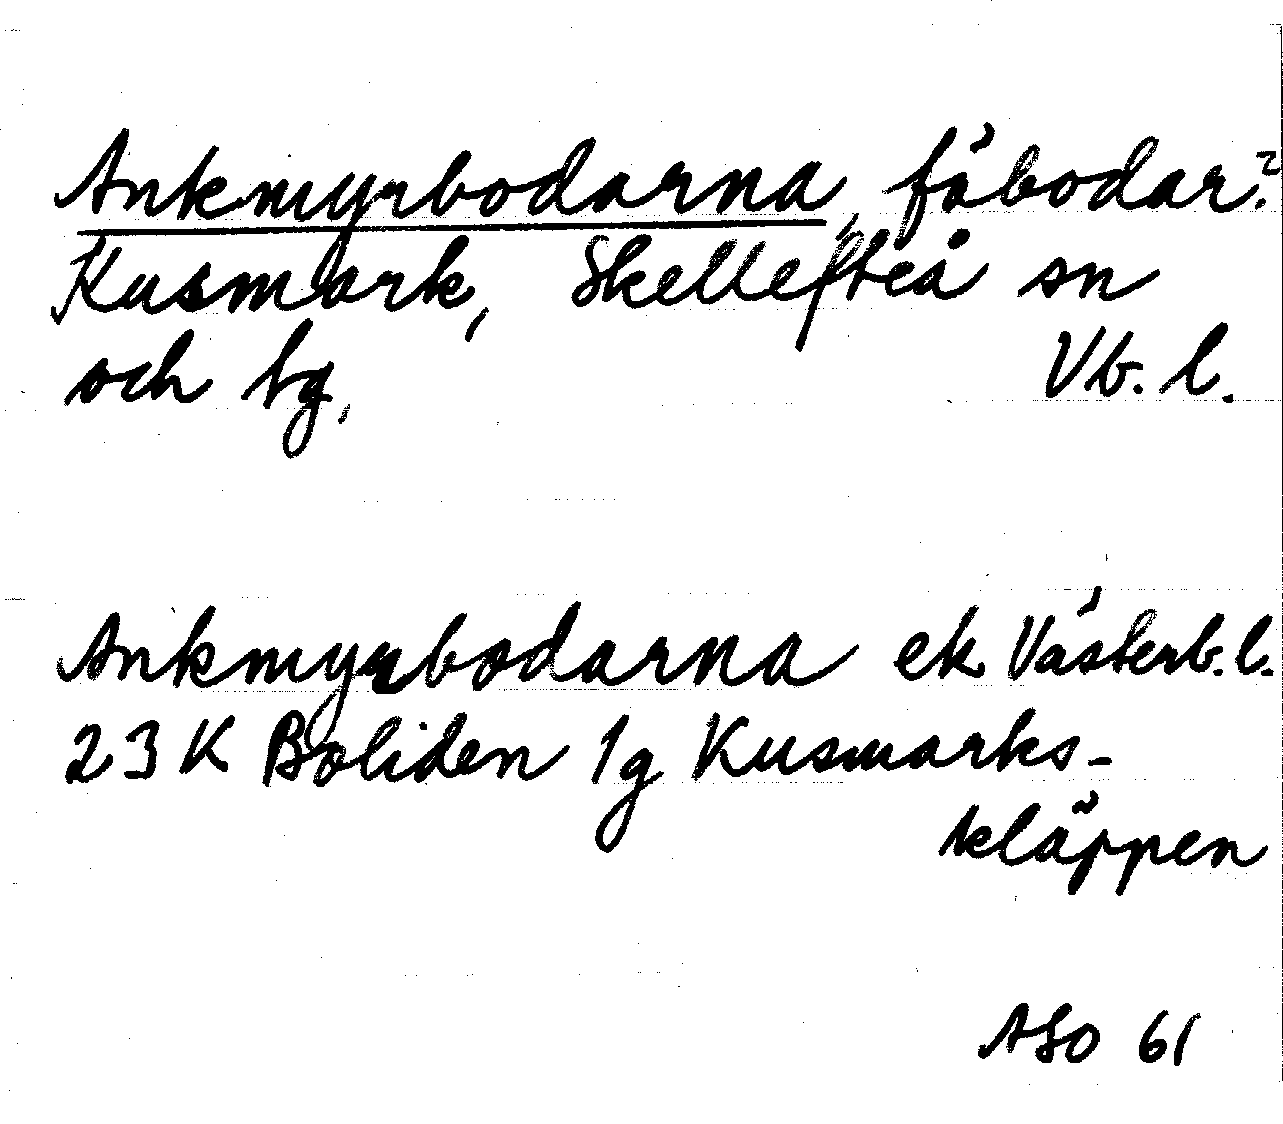 Ankmyrbodarna, fäbodar?
Kusmark, Skellefteå sn
och tg, Vb. l.
Ankmyrbodarna ek Västerb. l.
23 K Boliden 1g Kusmarks-
kläppen
ASO 61